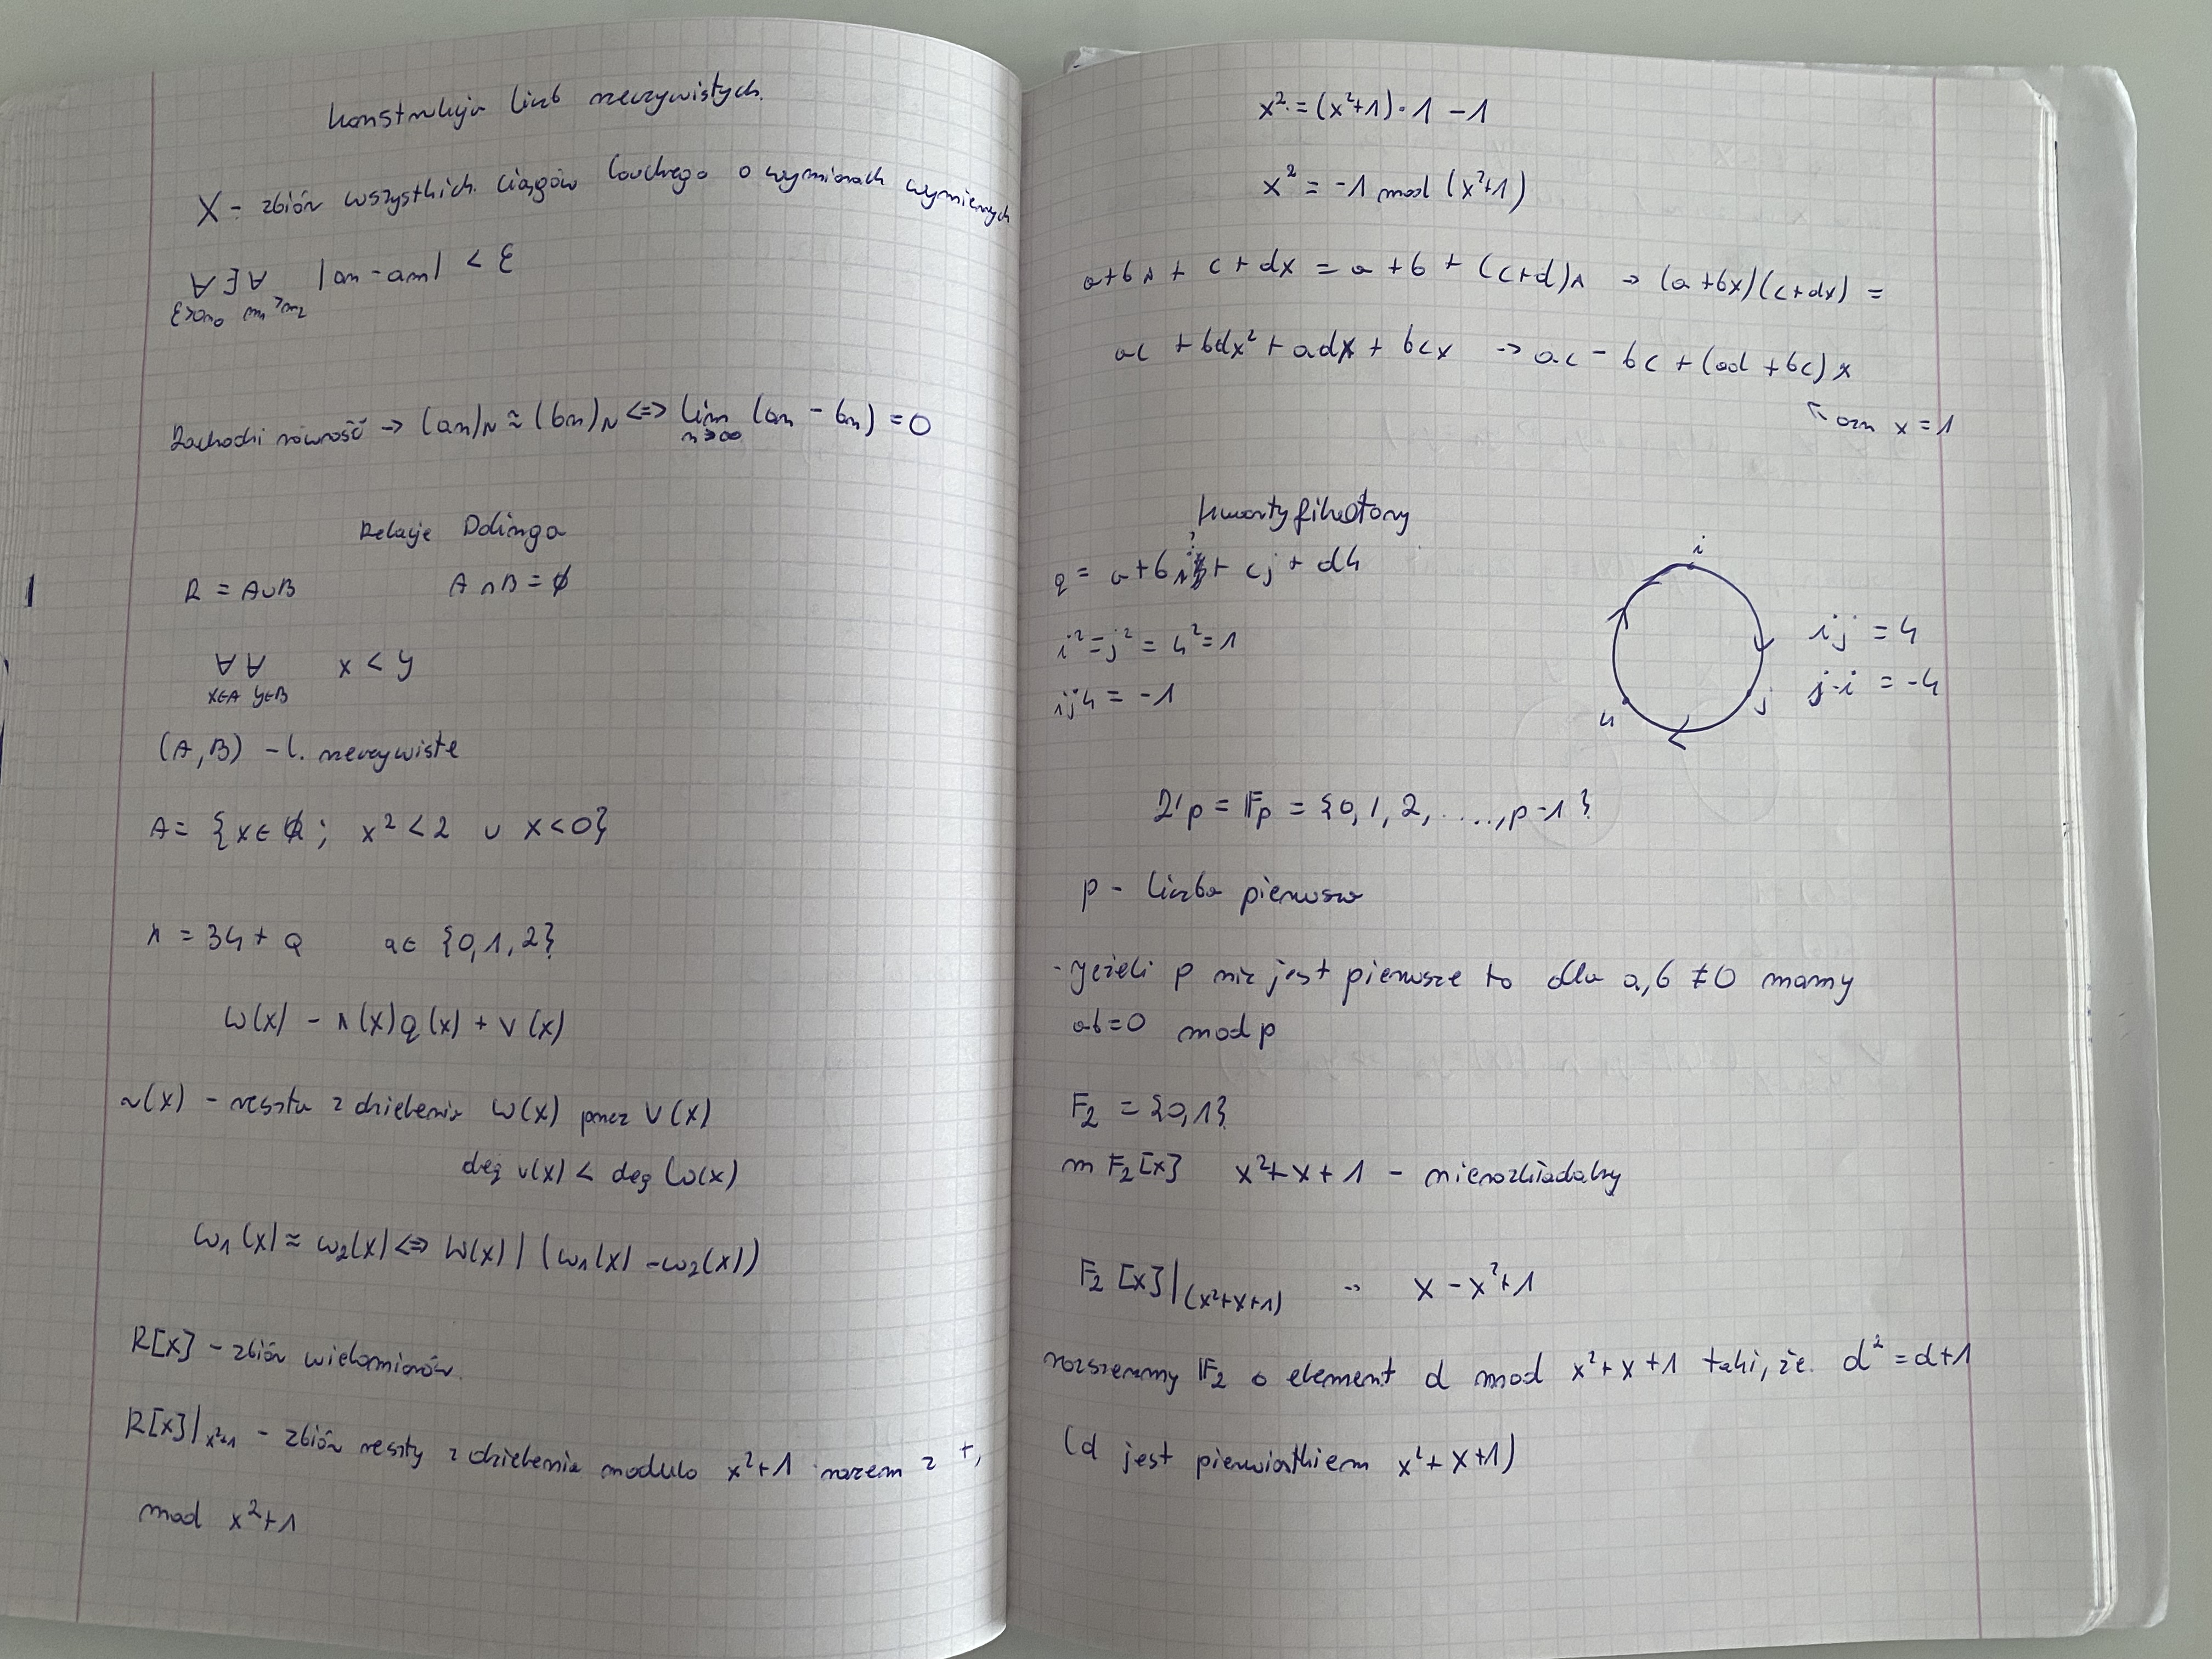 Konstrukcja liczb rzeczywistych.
X - zbiór wszystkich ciągów Cauchego o wyrazach wymiernych
∀ ∃ ∀ |an - am| < ε
ε>0 n0 m,n>
Zachodzi równość → (an)N ≈ (bn)N <=> lim (an - bn) = 0
n→∞
Relacje Ddinga
R = A∪B A ∩ B = ∅
∀ ∀ x < y
x∈A y∈B
(A,B) - l. rzeczywiste
A = {x ∈ Q ; x² < 2 ∪ x < 0}
x = 3k + q q ∈ {0,1,2}
W(x) - r(x) q(x) + v(x)
r(x) - reszta z dzielenia W(x) przez V(x)
deg v(x) < deg W(x)
W1(x) ≈ W2(x) <=> W(x) | (W1(x) - W2(x))
R[x] - zbiór wielomianów.
R[x]|x²+1 - zbiór reszty z dzielenia modulo x²+1 razem z +,
mod x²+1
x² = (x²+1)·1 - 1
x² = -1 mod (x²+1)
a+bx + c+dx = a+b + (c+d)x → (a+bx)(c+dx) =
ac + bdx² + adx + bcx → ac - bc + (ad + bc)x
ozn x = i
kwanty
q = a + bi + cj + dk
i² = j² = k² = 1
ijk = -1
i
j
k
ij = k
ji = -k
Zp = 𝔽p = {0, 1, 2, ...., p-1}
p - liczba pierwsza
- Jeżeli p nie jest pierwsze to dla a,b ≠ 0 mamy
ab = 0 mod p
𝔽2 = {0,1}
n 𝔽2[x] x² + x + 1 - nierozkładalny
𝔽2[x]|(x²+x+1) → x - x²+1
rozszerzamy 𝔽2 o element d mod x² + x + 1 taki, że. d² = d+1
(d jest pierwiastkiem x² + x + 1)